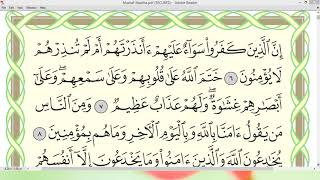 Mushaf Madina.pdf (SECURED) - Adobe Reader
إِنَّ ٱلَّذِينَ كَفَرُوا۟ سَوَآءٌ عَلَيْهِمْ ءَأَنذَرْتَهُمْ أَمْ لَمْ تُنذِرْهُمْ
لَا يُؤْمِنُونَ ٦ خَتَمَ ٱللَّهُ عَلَىٰ قُلُوبِهِمْ وَعَلَىٰ سَمْعِهِمْ ۖ وَعَلَىٰٓ
أَبْصَٰرِهِمْ غِشَٰوَةٌ ۖ وَلَهُمْ عَذَابٌ عَظِيمٌ ٧ وَمِنَ ٱلنَّاسِ
مَن يَقُولُ ءَامَنَّا بِٱللَّهِ وَبِٱلْيَوْمِ ٱلْـَٔاخِرِ وَمَا هُم بِمُؤْمِنِينَ ٨
يُخَٰدِعُونَ ٱللَّهَ وَٱلَّذِينَ ءَامَنُوا۟ وَمَا يَخْدَعُونَ إِلَّآ أَنفُسَهُمْ